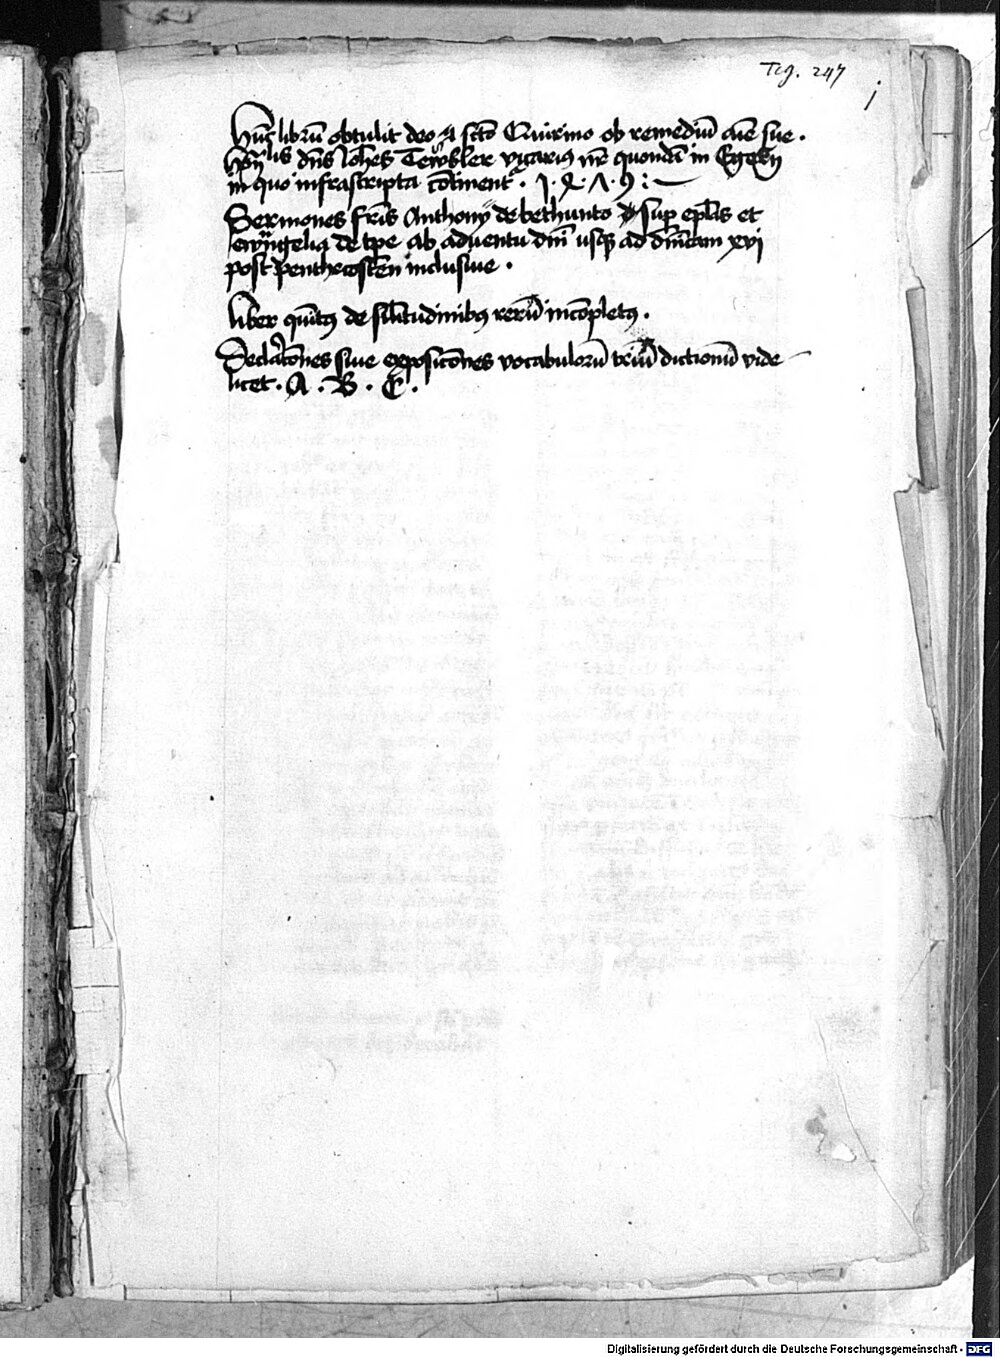 Teg. 247
j
Hūc librū obtulit deo et scto Quirino ob remediū aīe sue .
lis dns Johēs vicarius nr̄ quondā in Egern
in quo infrascripta cōtinent . 1 . 4 . Λ . 9 :
Sermones fr̄is Anthonÿ de bethunto sup epl̄as et
ewāngelia de tpe ab aduentu dn̄i usq̄ ad dn̄icam xvi
post penthecosten inclusiue .
liber quīt9 de sil̄itudinib9 rerū incōplet9 .
Declarac̄ones siue exposic̄ones vocabulorū triū dictionū vide
licet . A . B . C .
Digitalisierung gefördert durch die Deutsche Forschungsgemeinschaft - DFG